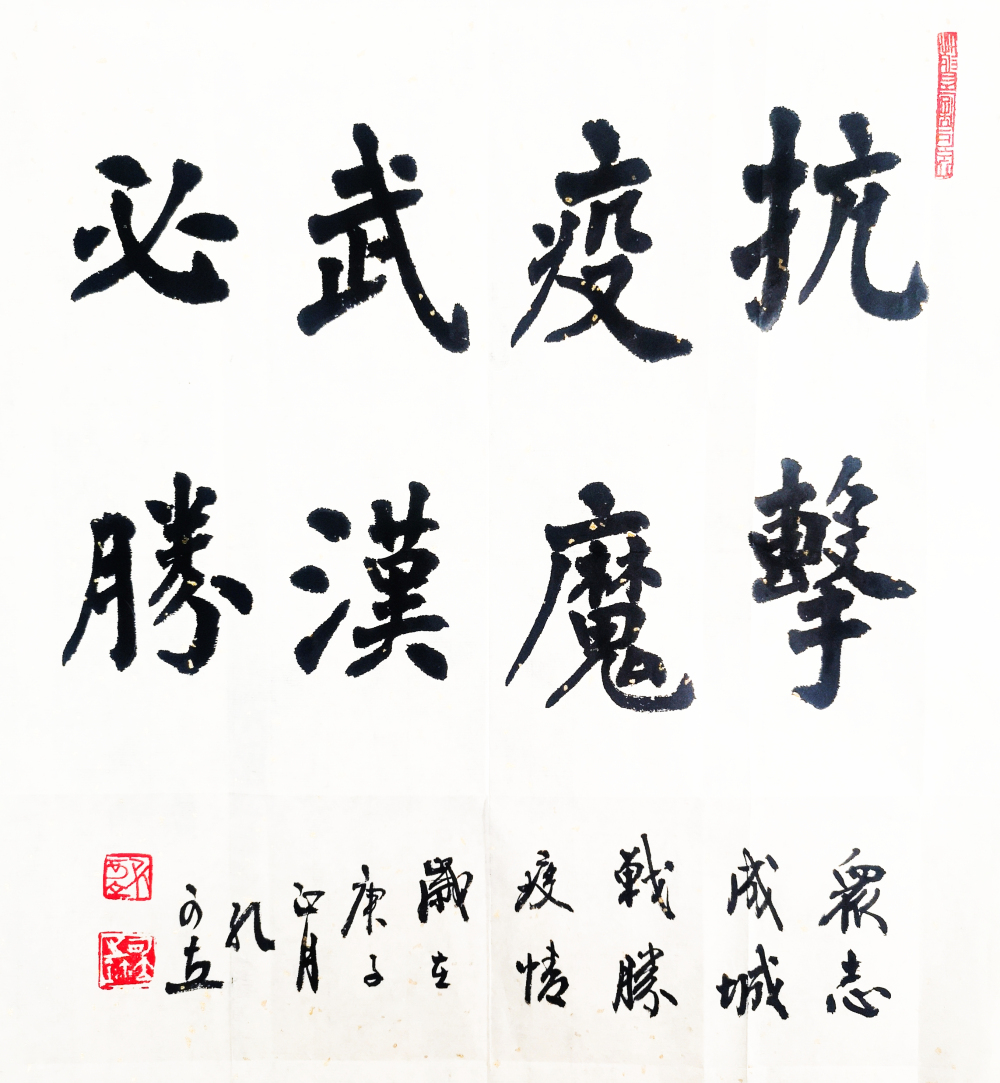 抗擊
疫魔
武漢
必勝
眾志
成城
戰勝
疫情
歲在
庚子
正月
孔
可立